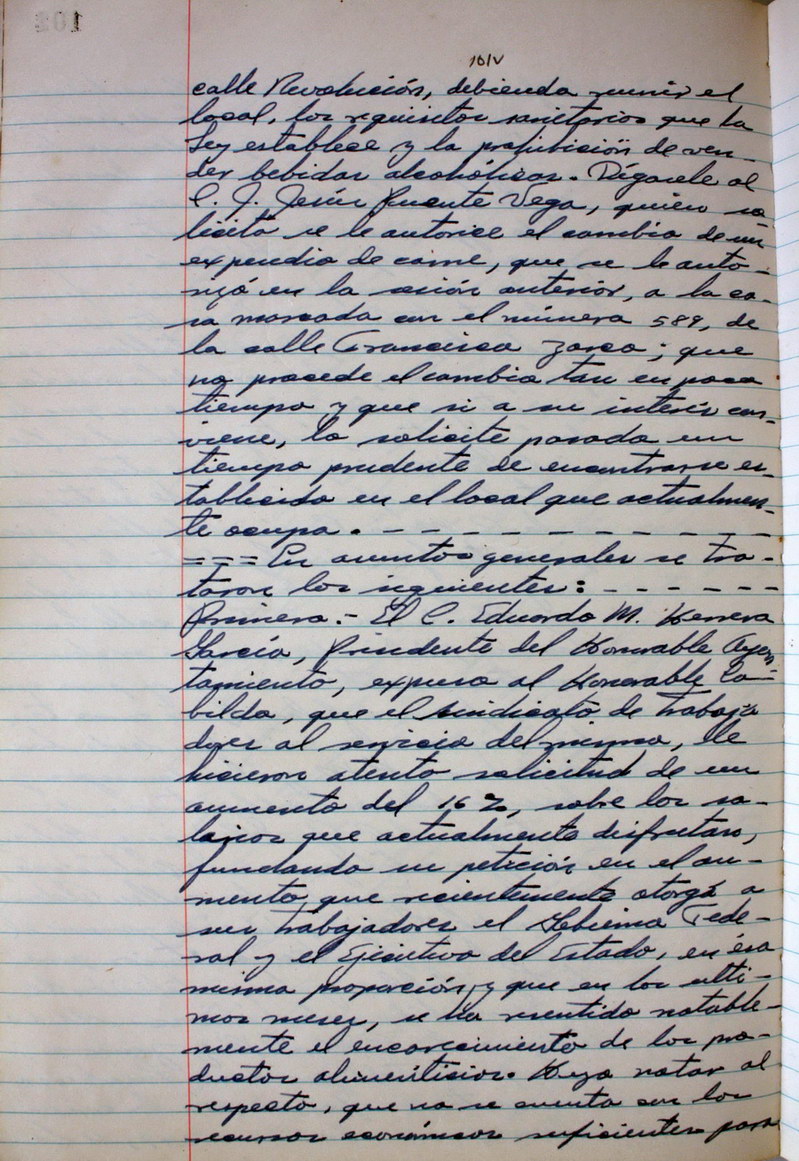 101v
calle Revolución, debiendo reunir el
local, los requisitos sanitarios que la
Ley establece y la prohibición de ven-
der bebidas alcohólicas. Dígasele al
C. J. Jesús Puente Vega, quien so-
licita se le autorice el cambio de un
expendio de carne, que se le auto-
rizó en la sesión anterior, a la ca-
sa marcada con el número 589, de
la calle Francisco Zarco; que
no procede el cambio tan en poco
tiempo y que si a su interés con-
viene, lo solicite pasado un
tiempo prudente de encontrarse es-
tablecido en el local que actualmen-
te ocupa. - - - - - - - - - -
=== En asuntos generales se tra-
taron los siguientes: - - - - - -
Primero.- El C. Eduardo M. Herrera
García, Presidente del Honorable Ayun-
tamiento, expuso al Honorable Ca-
bildo, que el sindicato de trabaja-
dores al servicio del mismo, le
hicieron atento solicitud de un
aumento del 16%, sobre los sa-
larios que actualmente disfrutan,
fundando su petición en el au-
mento que recientemente otorgó a
sus trabajadores el Gobierno Fede-
ral y el Ejecutivo del Estado, en ésa
misma proporción, y que en los ulti-
mos meses, se ha resentido notable-
mente el encarecimiento de los pro-
ductos alimenticios. Hizo notar al
respecto, que no se cuenta con los
recursos económicos suficientes para